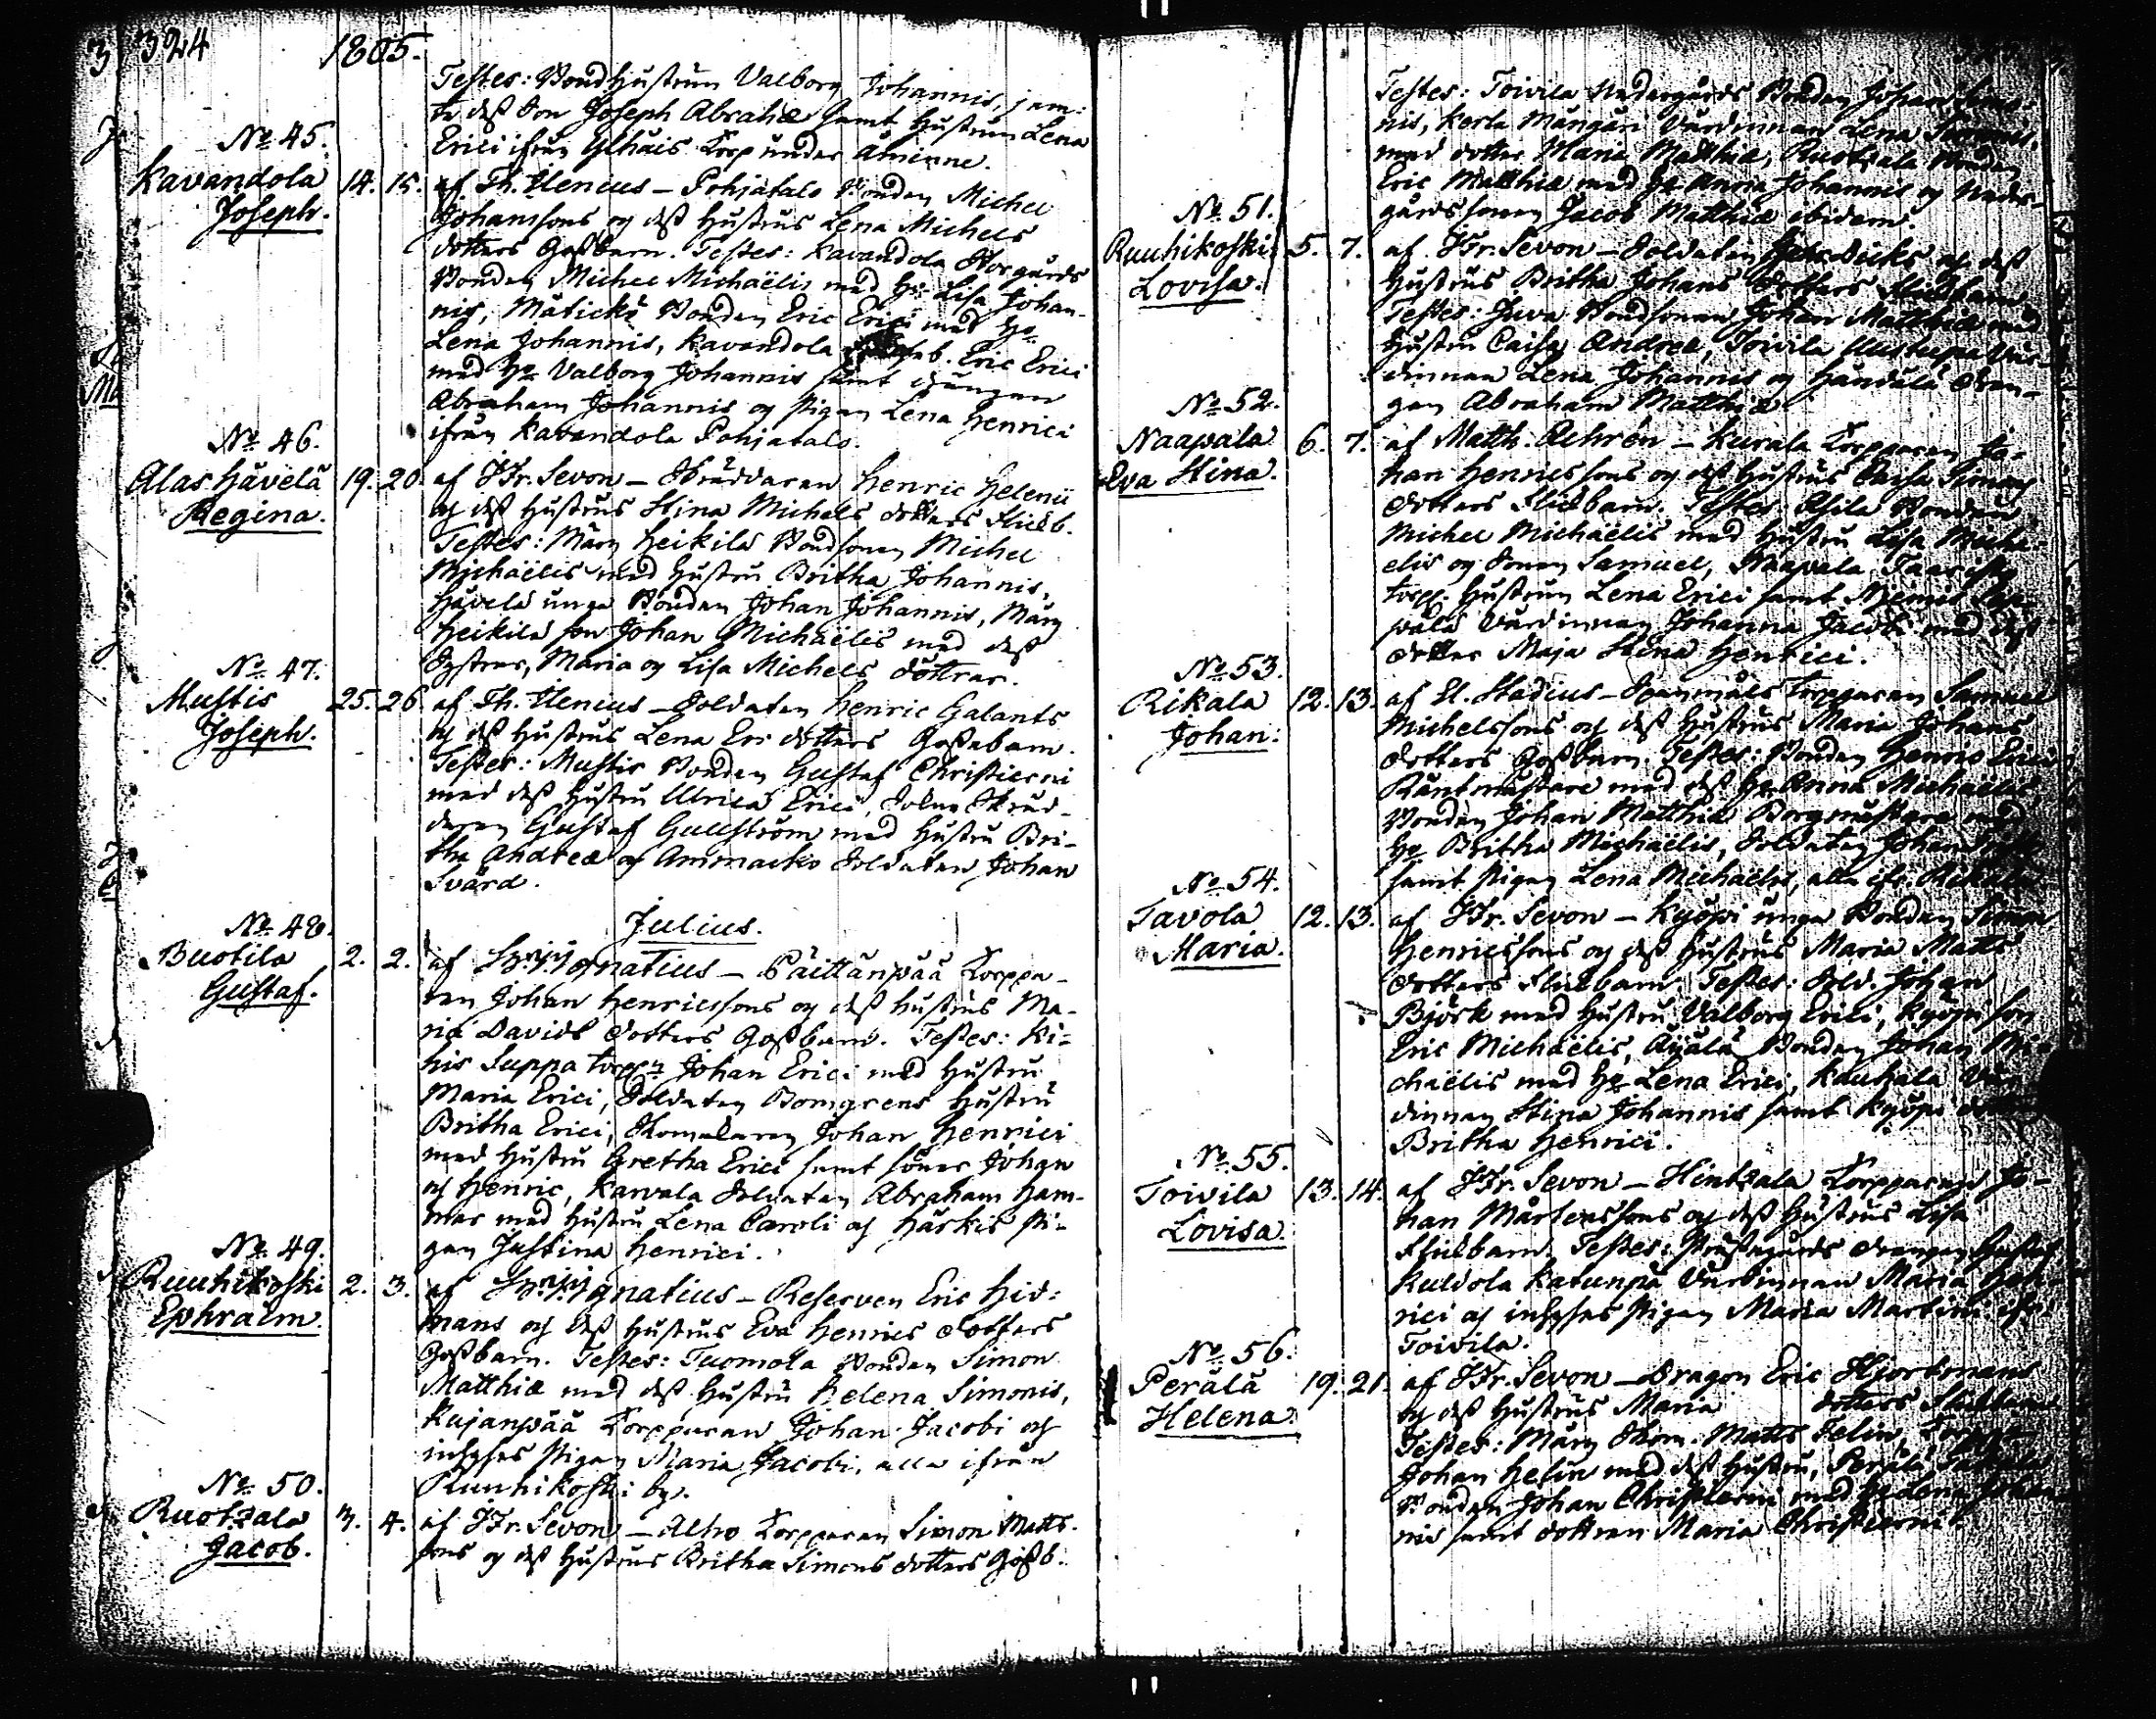 324
1805.
Testes: Bondhustrun Valborg Johannis, jem-
te dess Son Joseph Abrahæ samt Hustrun Lena
Erici ifrån Torp under
No 45.
Kavandola 14. 15. af Th. Ilenius – Pohjatalo Bonden Michel
Joseph.
Johanssons og dess Hustrus Lena Michels
dotters Gossbarn. Testes: Kavandola Storgårds
Bonden Michel Michaëlis med Ho Lisa Johan-
nis, Mäticke Bonden Eric Erici med Ho
Lena Johannis, Kavandola Eric Erici
med Ho Valborg Johannis samt drängen
Abraham Johannis og Pigan Lena Henrici
ifrån Kavandola Pohjatalo.
No 46.
Alas Hävelä 19. 20. af J Fr. Sevon – Skräddaren Henric Helenii
Regina.
og dess Hustrus Stina Michels dotters Flickb.
Testes: Märy Heikilä Bondsonen Michel
Michaëlis med Hustru Britha Johannis,
Hävelä unga Bonden Johan Johannis, Märy
Heikilä son Johan Michaëlis med dess
Systrar, Maria og Lisa Michels döttrar.
No 47.
Mustis 25. 26. af Th. Ilenius – Soldaten Henric Galants
Joseph.
og dess Hustrus Lena Ers dotters Gossebarn.
Testes: Mustis Bonden Gustaf Christierni
med dess Hustru Ulrica Erici, Skräd-
daren Gustaf Gullström med Hustru Bri-
tha Andreæ og Ammaiko Soldaten Johan
Svärd.
Julius.
No 48.
Buotila 2. 2. af Ignatius – Päittänpää Torppa-
Gustaf.
ren Johan Henricssons og dess Hustrus Ma-
ria Davids dotters Gossbarn. Testes: Ki-
his Suppa torppn Johan Erici med Hustru
Maria Erici, Soldaten Bomgrens Hustru
Britha Erici, Skomakaren Johan Henrici
med Hustru Gretha Erici samt söner Johan
og Henric, Karvala Soldaten Abraham Ham-
mar med Hustru Lena Caroli og Härkis Pi-
gan Justina Henrici.
No 49.
Ruuhikoski 2. 3. af Ignatius – Reserven Eric Hid-
Ephraim.
mans og dess Hustrus Eva Henrics dotters
Gossbarn. Testes: Tuomola Bonden Simon
Matthiæ med dess Hustru Helena Simonis,
Kujanpää Torpparen Johan Jacobi og
inhyses Pigan Maria Jacobi, alla ifrån
Ruuhikoski by.
No 50.
Ruotzala 3. 4. af J Fr. Sevon – Alho Torpparen Simon Matts-
Jacob.
sons og dess Hustrus Britha Simons dotters Gossb.
Testes: Toivila Nedergårds Bonden Johan Simo-
nis, Kerla Mängäri Värdinnan Lena
med dotter Maria Matthiæ, Ruotzala Bonden
Eric Matthiæ med Ho Anna Johannis og Neder-
gårds sonen Jacob Matthiæ ibidem.
No 51.
Ruuhikoski 5. 7. af J Fr. Sevon – Soldaten og dess
Lovisa.
Hustrus Britha Johans dotters Flickbarn
Testes: Juva Bondsonen Johan Matthiæ med
Hustru Caisa Andreæ, Toivila Vär-
dinnan Lena Johannis og Händälä drän-
gen Abraham Matthiæ
No 52.
Naapala 6. 7. af Matth. Achrén – Kurala Torpparen Jo-
Eva Stina.
han Henricssons og dess Hustrus Caisa Simons
dotters Flickbarn. Testes: Asila Bonden
Michel Michaëlis med Hustru Lisa Micha-
elis og Sonen Samuel, Naapala
torpp. Hustrun Lena Erici samt
Värdinnan Johanna Jacobi med dess
dotter Maja Stina Henrici.
No 53.
Rikala 12. 13. af El. Stadius – Torpparen Samuel
Johan.
Michelssons og dess Hustrus Maria Johans
dotters Gossbarn. Testes: Bonden Henric Erici
Räntmästare med dess Ho Anna Michaëlis,
Bonden Johan Matthiæ Borgmästare med
Ho Britha Michaëlis, Soldaten Johan
samt Pigan Lena Michaelis, alla ifr. Rikala
No 54.
Tavola 12. 13. af J Fr. Sevon – Kyöpi unga Bonden Simon
Maria.
Henricssons og dess Hustrus Maria Matts
dotters Flickbarn. Testes: Sold. Johan
Björk med Hustru Valborg Erici, Kyöpi son
Eric Michaëlis, Äyälä Bonden Johan Mi-
chaëlis med Ho Lena Erici, Kaukala Vär-
dinnan Stina Johannis samt Kyöpi
Britha Henrici.
No 55.
Toivila 13. 14. af J Fr. Sevon – Hintzala Torpparens Jo-
Lovisa.
han Mårtenssons og dess Hustrus Lisa
Flickbarn. Testes: Prästgårds drängen Gustaf,
Kuldola Katunpä Värdinnan Maria Hen-
rici og inhyses Pigan Maria Martini ifr.
Toivila.
No 56.
Perälä 19. 21. af J Fr. Sevon – Dragon Eric Hjortmans
Helena.
og dess Hustrus Maria dotters Flickbarn
Testes: Märy Skom. Matts Felin,
Johan Helin med dess Hustru, Perälä
Bonden Johan Christierni med Ho Lena Johan-
nis samt dottren Maria Christierni.